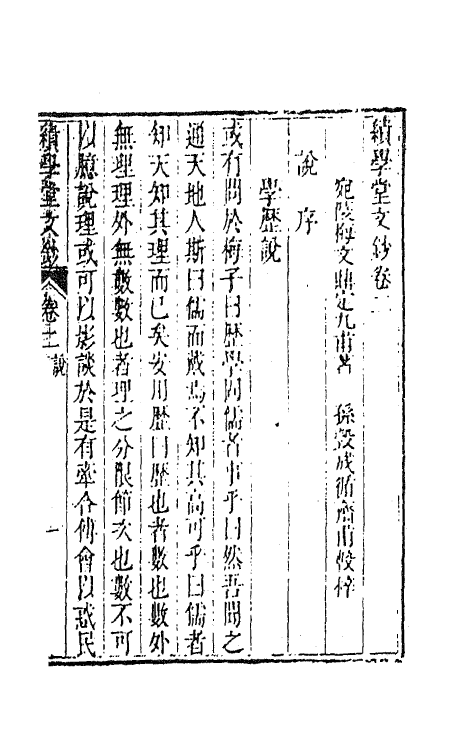 績學堂文鈔卷二
宛陵梅文鼎定九甫著　孫瑴成循齋甫校梓
說　序
學歷說
或有問於梅子曰歷學固儒者事乎曰然吾聞之
通天地人斯曰儒而戴焉不知其高可乎曰儒者
知天知其理而已矣安用歷曰歷也者數也數外
無理理外無數數也者理之分限節次也數不可
以臆說理或可以影談於是有牽合傅會以惑民
績學堂文鈔　卷二　說　一